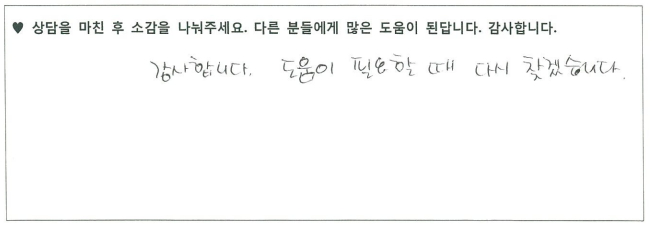 ♥ 상담을 마친 후 소감을 나눠주세요. 다른 분들에게 많은 도움이 된답니다. 감사합니다.
감사합니다. 도움이 필요할 때 다시 찾겠습니다.